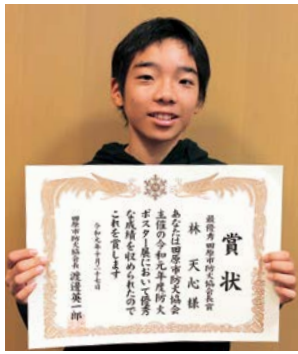 賞状
最優秀 田原市防火協会長賞
林 天心 様
あなたは田原市防火協会
主催の令和元年度防火
ポスター展において優秀
な成績を収められたので
これを賞します
令和元年十月二十七日
田原市防火協会長 渡邉英一郎